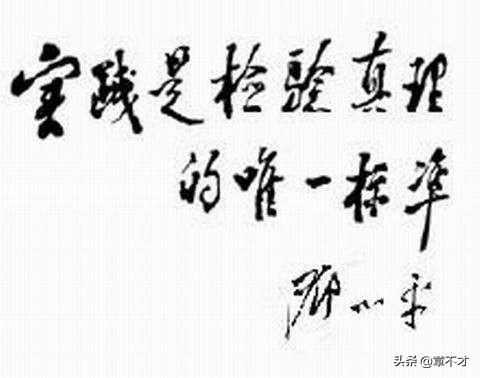 实践是检验真理
的唯一标准
邓小平
头条 @章不才